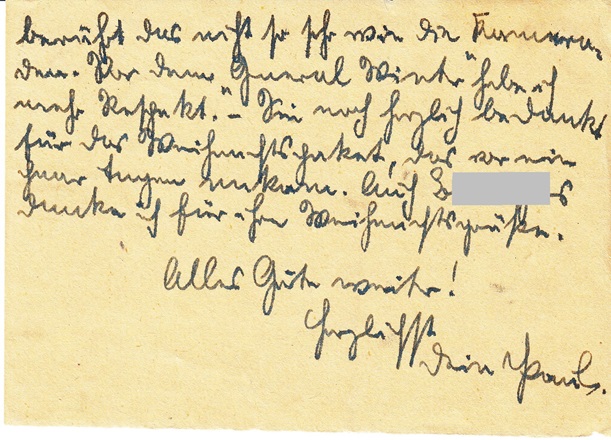 berührt das nicht so sehr wie die Kamera-
den. Vor dem "General Winter" habe ich
mehr Respekt." - Sei noch herzlich bedankt
für das Weihnachtspaket, das vor ein
paar Tagen ankam. Auch
danke ich für ihre Weihnachtsgrüße.
Alles Gute weiter!
Herzlichst
Dein Paul.